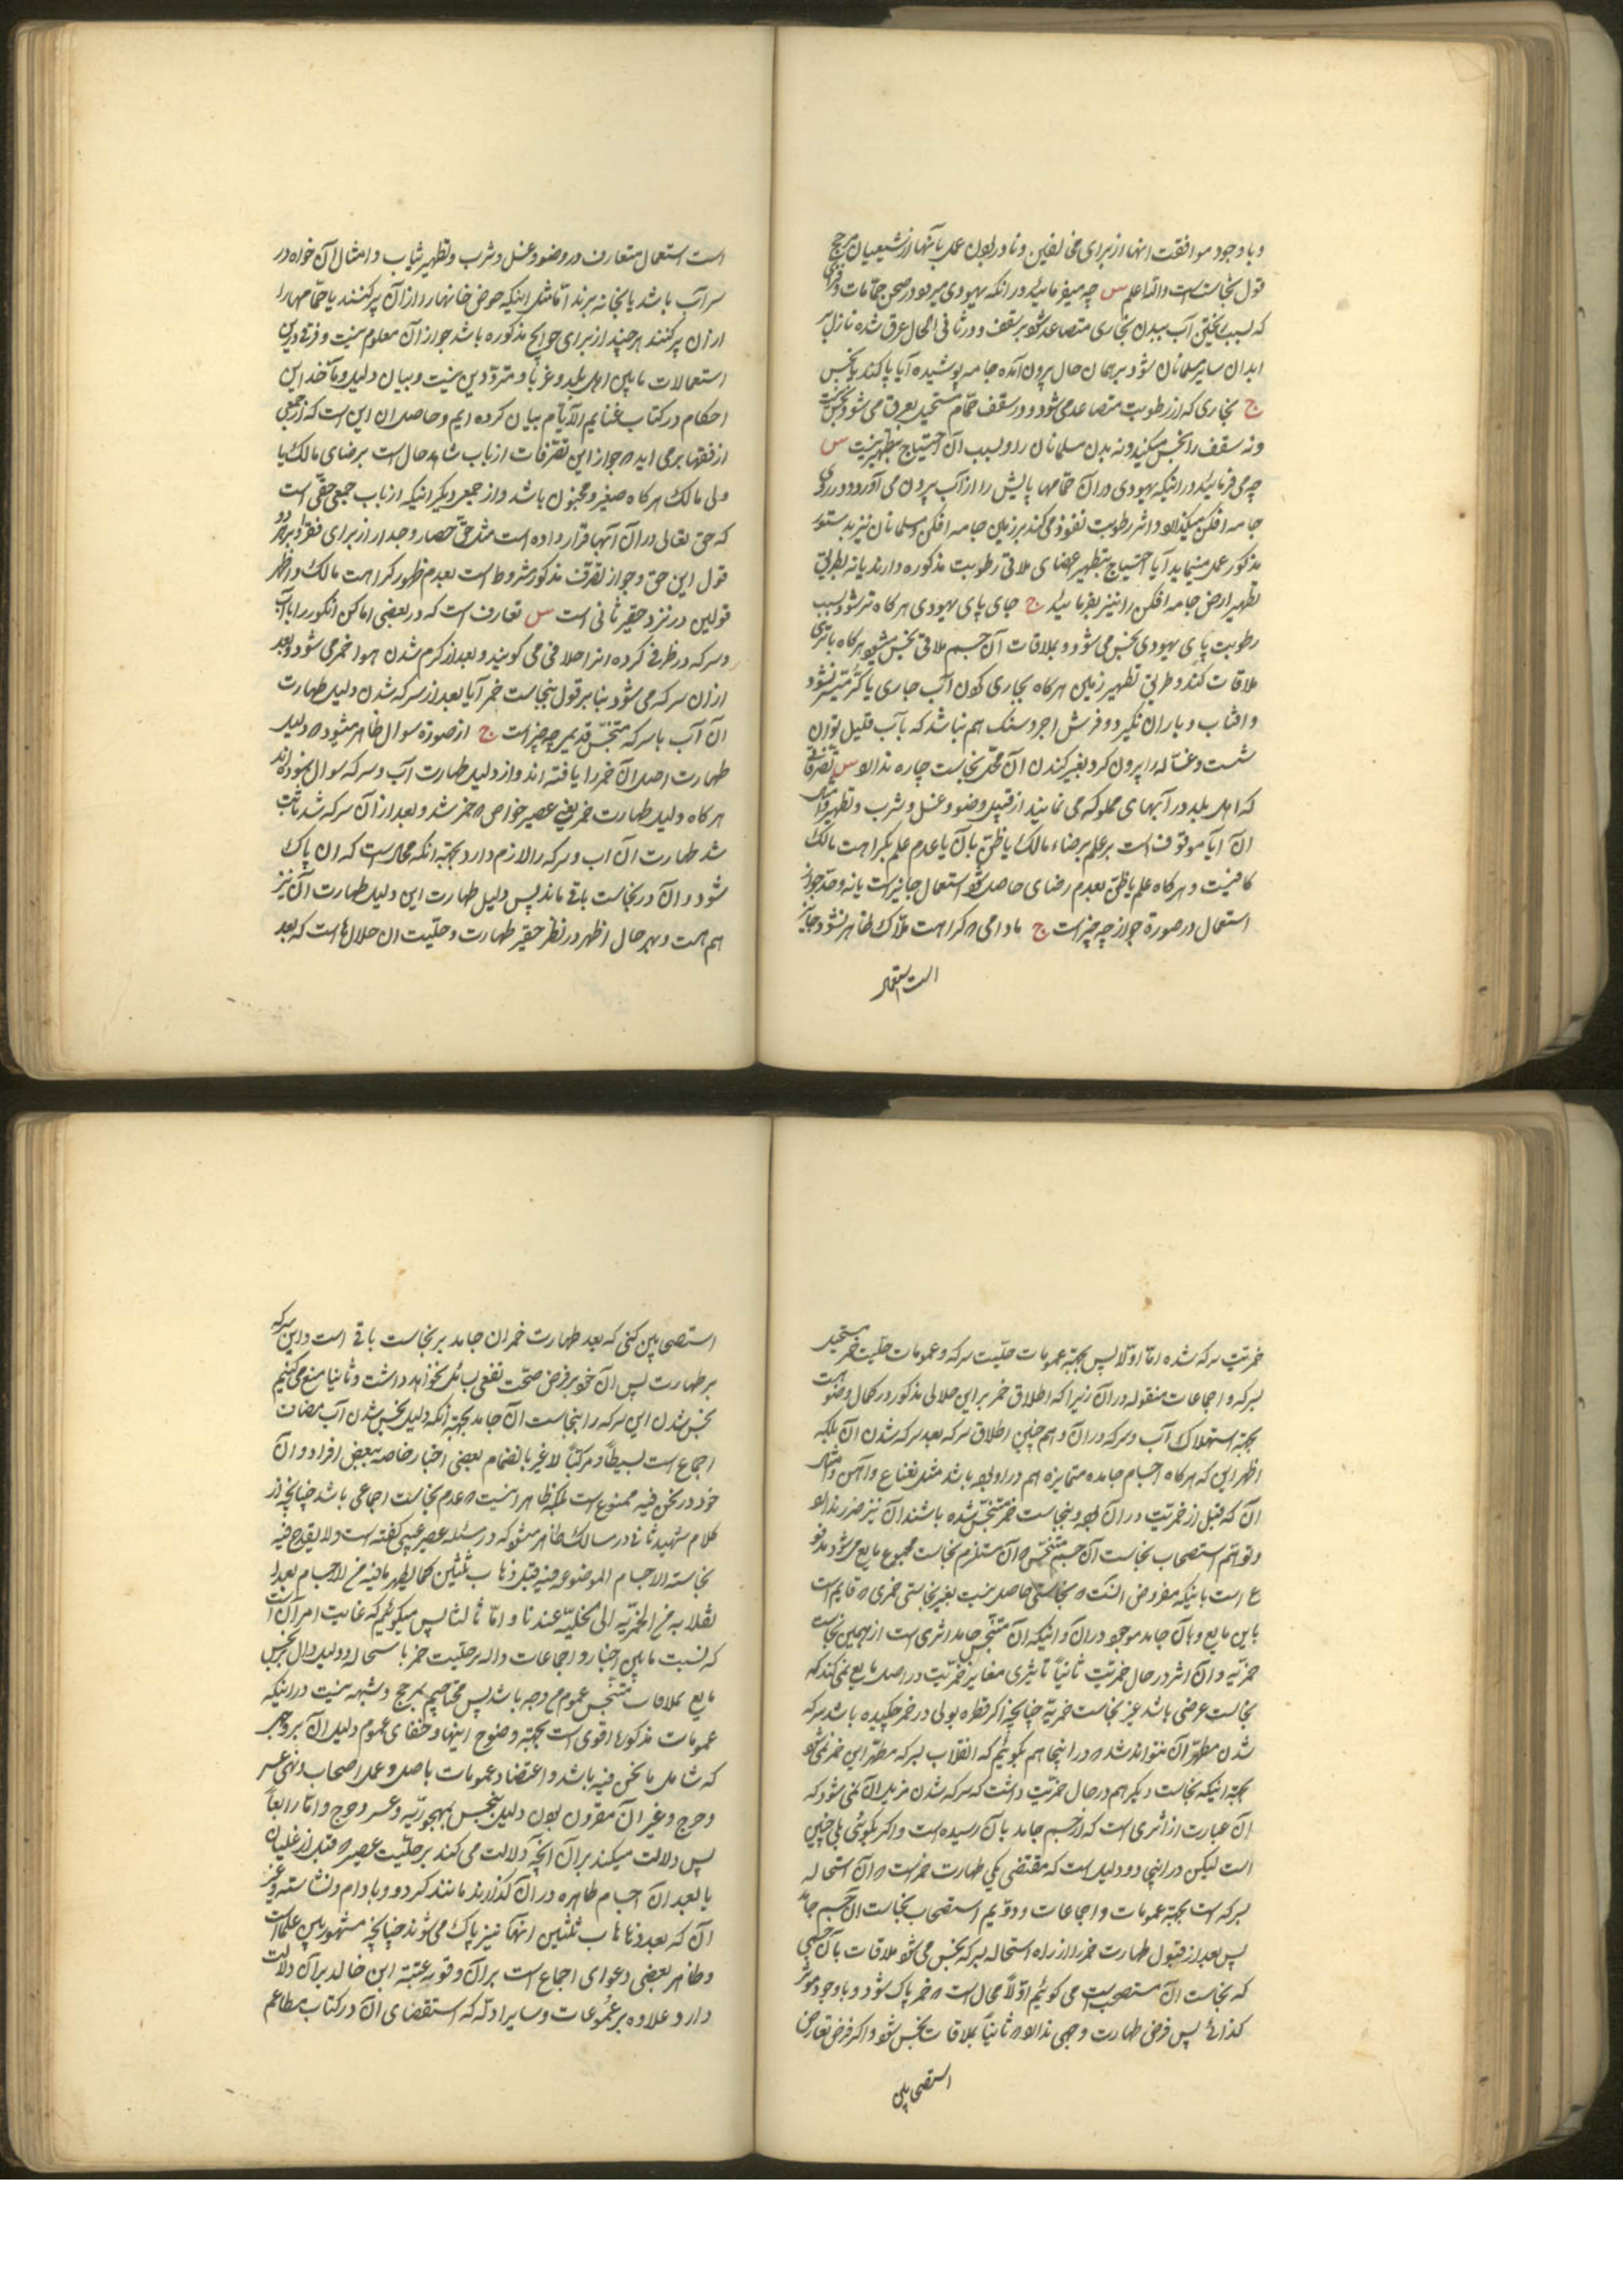 و باوجود موافقت انها از برای مخالفین و نادر بودن عمل بآنها از شیعیان مرجح
قول نجاست است والله اعلم س چه میفرمایند در انکه یهودی میرود در صحن حمامات و
که بسبب ریختن آب ببدن بخاری متصاعد شود بر سقف و در ثانی الحال عرق شده نازل بر
ابدان سایر مسلمانان شود بر همان حال بیرون آمده جامه پوشیده آیا پاکند یا نجس
ج بخاری که از رطوبت متصاعد می شود و در سقف حمام مستحیل بعرق می شود نجس نیست
و نه سقف را نجس میکند و نه بدن مسلمانان را و بسبب آن احتیاج بتطهیر نیست س
چه می فرمایند در اینکه یهودی در آن حمامها پایش را از آب بیرون می آورد و در روی
جامه افکن میکذارد و اثر رطوبت نفوذ می کند بر زمین جامه افکن و مسلمانان نیز بدستور
مذکور عمل مینماید آیا احتیاج بتطهیر اعضای ملاقی رطوبت مذکوره دارند یا نه بطریق
تطهیر ارض جامه افکن را نیز بفرمایند ج جای پای یهودی هر کاه تر شود بسبب
رطوبت پای یهودی نجس می شود و بملاقات آن جسم ملاقی نجس میشود هر کاه با تری
ملاقات کند و طریق تطهیر زمین هر کاه بجاری کردن آب جاری یا کر متیسر نشود
و افتاب و باران نکیرد و فرش اجر و سنک هم نباشد که بآب قلیل توان
شست و غساله را بیرون کرد بغیر کندن آن محل نجاست چاره ندارد س تصرفاتی
که اهل بلد در آبهای مملوکه می نمایند از قبیل وضو و غسل و شرب و تطهیر و امثال
ان آیا موقوف است بر علم برضاء مالک یا ظن بآن یا عدم علم بکراهت مالک
کافیست و هر کاه علم یا ظن بعدم رضای حاصل شود استعمال جایز است یا نه و حد جواز
استعمال در صورة جواز چه چیز است ج مادامی که کراهت ملاک ظاهر نشود جایز
است استعمال
است استعمال متعارف در وضو و غسل و شرب و تطهیر ثیاب و امثال آن خواه در
سر آب باشد یا بخانه برند اما مثل اینکه حوض خانها را از آن پر کنند یا حمامها را
از ان پر کنند هر چند از برای حوایج مذکوره باشد جواز آن معلوم نیست و فرقی در این
استعمالات مابین اهل بلد و غربا و مترددین نیست و بیان دلیل و مآخذ این
احکام در کتاب غنایم الایام بیان کرده ایم و حاصل ان این است که از جمعی
از فقها بر می اید که جواز این تصرفات از باب شاهد حال است برضای مالک یا
ولی مالک هر کاه صغیر و مجنون باشد و از جمعی دیگر اینکه از باب جمعی حقی است
که حق تعالی در آن آبها قرار داده است مثل حق حصار و جدار از برای فقرا و بر هر دو
قول این حق و جواز تصرف مذکور مشروط است بعدم ظهور کراهت مالک و اظهر
قولین در نزد حقیر ثانی است س تعارف است که در بعضی اماکن انکور را با آب
و سرکه در ظرفی کرده انرا حلافی می کویند و بعد از کرم شدن هوا خمر می شود و بعد
از ان سرکه می شود بنا بر قول بنجاست خمر آیا بعد از سرکه شدن دلیل طهارت
آن آب با سرکه متنجس قدیم چه چیز است ج از صورة سوال ظاهر میشود که دلیل
طهارت اصل ان خمر را یافته اند و از دلیل طهارت آب و سرکه سوال نموده اند
هر کاه دلیل طهارت خمر یعنی عصیر خواص که خمر شد و بعد از آن سرکه شد ثابت
شد طهارت آن اب و سرکه را لازم دارد بجهة انکه محال است که ان پاک
شود و آن در نجاست باقی ماند پس دلیل طهارت این دلیل طهارت آن نیز
هم هست و بهر حال اظهر در نظر حقیر طهارت و حلیت ان حلال ها است که بعد
خمریت سرکه شده اما اولا پس بجهة عمومات حلیت سرکه و عمومات حلیت خمر مستحیل
بسرکه و اجماعات منقوله در آن زیرا که اطلاق خمر بر این حلالی مذکور در کمال وضوح است
بجهة استهلاک آب و سرکه در آن و هم چنین اطلاق سرکه بعد سرکه شدن آن بلکه
اظهر این که هر کاه اجسام جامده متمایزه هم در او بوده باشد مثل نعناع و آهن و امثال
ان که قبل از خمریت در ان بوده و بنجاست خمر متنجس شده باشند ان نیز ضرر ندارد
و توهم استصحاب نجاست آن جسم متنجس که آن مستلزم نجاست مجموع مایع می شود مدفوع
است باینکه مفروض انست که نجاستی حاصل نیست بغیر نجاستی خمری که قایم است
باین مایع و بآن جامد موجود در آن و اینکه ان متنجس جامد اثری است از همین نجاست
خمریه و ان اثر در حال خمریت ثانیاً تاثیری مغایر خمریت در اصل مایع نمی کند که
نجاست عرضی باشد غیر نجاست خمریه چنانچه اکر قطره بولی در خمر چکیده باشد سرکه
شدن مطهر آن نتواند شد که در اینجا هم بکوئیم که انقلاب بسرکه مطهر این خمر نمی شود
بجهة اینکه نجاست دیکر هم در حال خمریت داشت که سرکه شدن مزیل ان نمی شود که
آن عبارت از اثری است که از جسم جامد بآن رسیده است و اکر بکوئی بلی چنین
است لیکن در اینجا دو دلیل است که مقتضی یکی طهارت خمر است که آن استحاله
بسرکه است بجهة عمومات و اجماعات و دویم استصحاب نجاست آن جسم جامد
پس بعد از قبول طهارت خمر را از راه استحاله بسرکه نجس می شود بملاقات با آن جسمی
که نجاست ان مستصحب است می کوئیم اولاً محال است که خمر پاک شود و باوجود مؤثر
کذائی پس فرض طهارت وجهی ندارد که ثانیاً بملاقات نجس شود و اکر فرض تعارض
استصحابین
استصحابین کنی که بعد طهارت خمر ان جامد بر نجاست باقی است و این سرکه
بر طهارت پس آن خود بر فرض صحت نفعی بسائل نخواهد داشت و ثانیا منع می کنیم
نجس شدن این سرکه را بنجاست آن جامد بجهة آنکه دلیل نجس شدن آب مضاف
اجماع است بسیطاً و مرکباً لا غیر بانضمام بعضی اخبار خاصه ببعض افراد و ان
خود در نحن فیه ممنوع است بلکه ظاهر اینست که عدم نجاست اجماعی باشد چنانچه از
کلام شهید ثانی در مسالک ظاهر میشود که در مسئله عصیر عنبی کفته است و لا یقدح فیه
نجاسته الاجسام الموضوعه فیه قبل ذهاب ثلثین کما یطهر مافیه من الاجسام بعد ا
نقلابه من الخمریه الی الخلیه عندنا و اما ثالثا پس میکوئیم که غایت امر آن است
که نسبت مابین اخبار و اجماعات داله بر حلیت خمر باستحاله و دلیل دال بر نجس
مایع بملاقات متنجس عموم من وجه باشد پس محتاجیم بمرجح و شبهه نیست در اینکه
عمومات مذکوره اقوی است بجهة وضوح اینها و خفای عموم دلیل ان بر وجهی
که شامل مانحن فیه باشد و اعتضاد عمومات باصل و عمل اصحاب و نفی عسر
و حرج و غیر آن مقرون بودن دلیل تنجس بمهجوریه و عسر و حرج و اما رابعاً
پس دلالت میکند بر آن آنچه دلالت می کند بر حلیت عصیر که قبل از غلیان
یا بعد ان اجسام طاهره در ان کذارند مانند کردو و بادام و نشاسته و غیر
آن که بعد ذهاب ثلثین انها نیز پاک می شوند چنانچه مشهور بین علماست
و ظاهر بعضی دعوای اجماع است بر آن و قویه عتبة ابن خالد بر آن دلالت
دارد علاوه بر عمومات و سایر ادله که استقصای ان در کتاب مطاعم